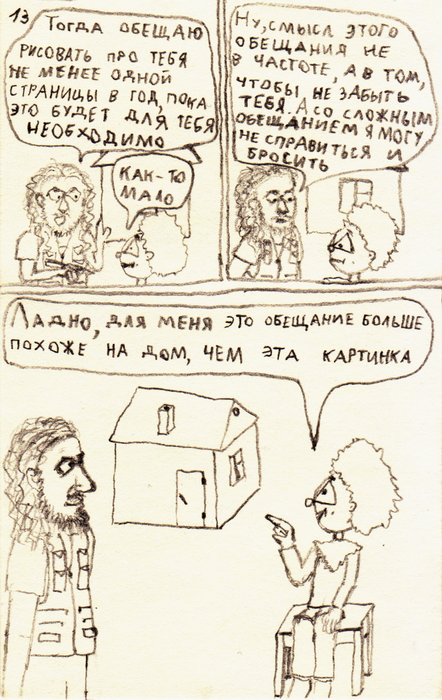 13
Тогда обещаю
рисовать про тебя
не менее одной
страницы в год, пока
это будет для тебя
необходимо
Как-то
мало
Ну, смысл этого
обещания не
в частоте, а в том,
чтобы не забыть
тебя. А со сложным
обещанием я могу
не справиться и
бросить
Ладно, для меня это обещание больше
похоже на дом, чем эта картинка